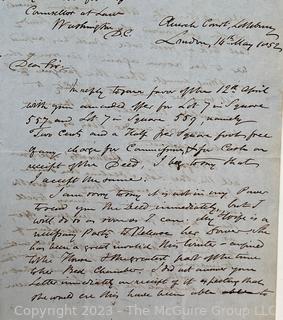 Councellor at Law
Washington
D.C.
Church Court, Lothbury
London, 14th May 1852
Dear Sir,
In reply to your favor of the 12th April
with your amended offer for Lot 7 in Square
557 and Lot 7 in Square 559, namely
Two Cents and a Half per Square foot free
of any charge for Commission & for Cash on
receipt of the Deed, I beg to say that
I accept the same.
I am sorry to say it is not in my Power
to send you the Deed immediately, but I
will do so as soon as I can. My Wife is a
necessary Party to Release her Dower. She
has been a great invalid this Winter - confined
to the House & the greatest part of the time
to her Bed Chamber. I did not answer your
Letter immediately on receipt of it expecting that
she would ere this have been able to
Copyright © 2023 - Daytime Auctions